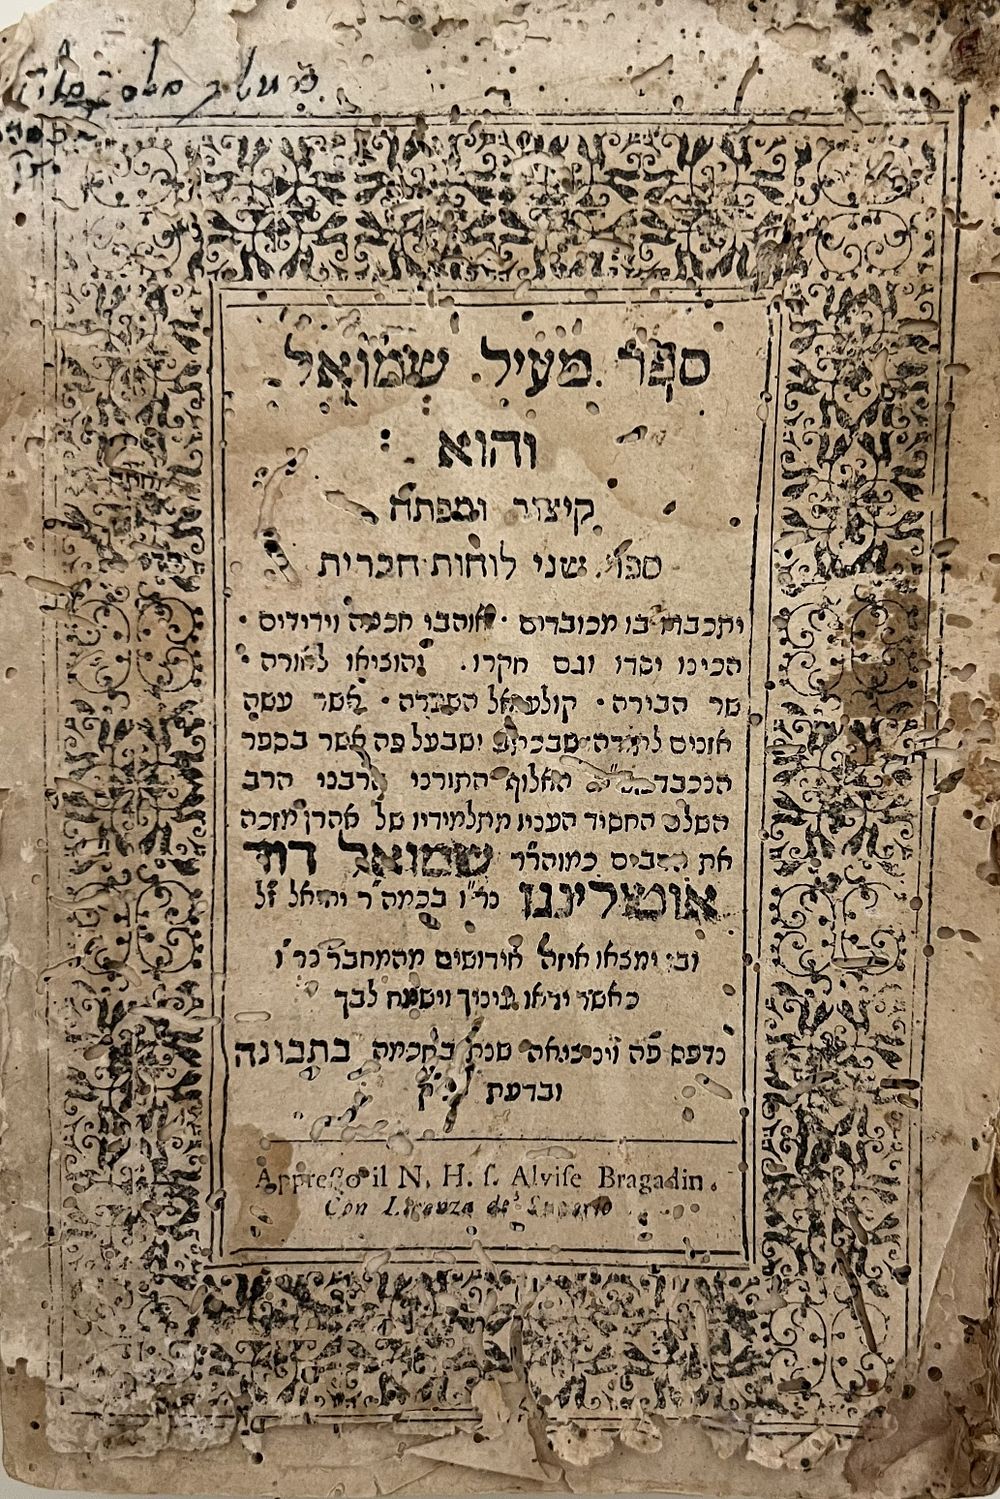 ספר מעיל שמואל
והוא
קיצור ומפתח
ספר שני לוחות הברית
יתכבדו בו מכובדים · אוהבי חכמה וידידים ·
הכינו יסדו וגם חקרו . והוציאו לאורה ·
שר הבירה · קול אל השררה · אשר עשה
אזנים לתורה שבכתב ושבעל פה אשר בספר
הנכבד האלוף התורני הרבני הרב
השלם החסיד העניו מתלמידיו של אהרן מזכה
את הרבים כמוהר״ר שמואל דוד
אוטולינגו נר״ו בכמה״ר יחיאל ז״ל
ובו ימצאו איזה חידושים מהמחבר נר״ו
כאשר יראו עיניך וישמח לבך
נדפס פה ויניציאה שנת בחכמה בתבונה
ובדעת לפ״ק
Appresso il N. H. s. Alvise Bragadin.
Con Licenza de' Superio